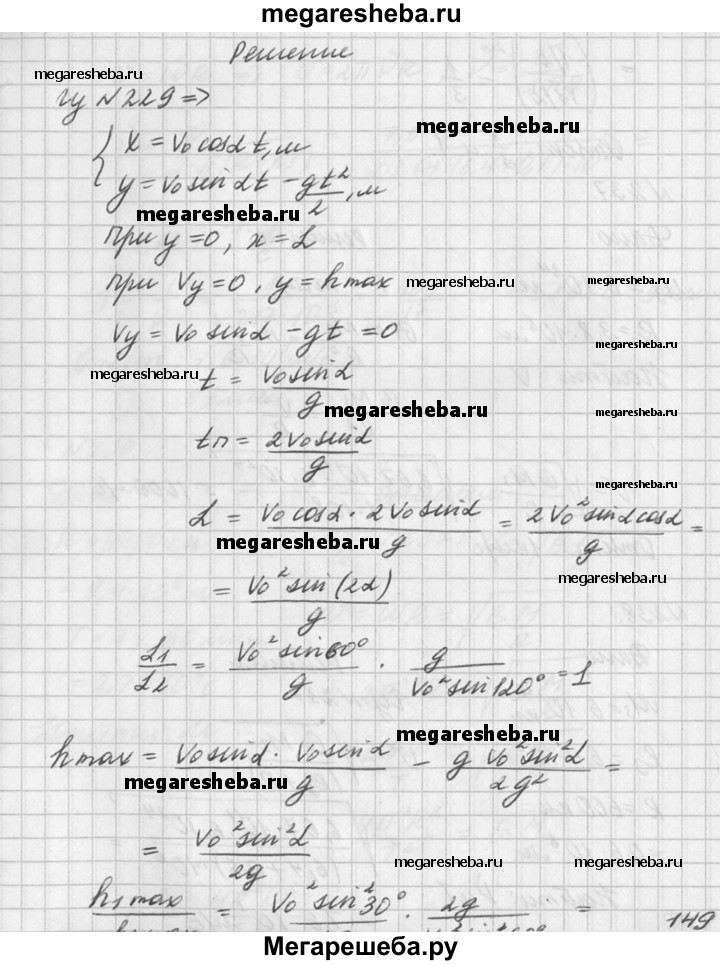 megaresheba.ru
Решение
megaresheba.ru
Iy №229 =>
megaresheba.ru
x = v₀cosα t, м
y = v₀sinαt - gt²/2, м
megaresheba.ru
при y=0, x=L
при Vy=0, y=hmax megaresheba.ru megaresheba.ru
Vy = V₀ sinα - gt = 0
megaresheba.ru
t = V₀sinα/g
megaresheba.ru megaresheba.ru
tп = 2V₀sinα/g
megaresheba.ru
L = V₀cosα · 2V₀sinα/g = 2V₀²sinαcosα/g =
megaresheba.ru
= V₀²sin(2α)/g
megaresheba.ru
L₁/L₂ = V₀²sin60°/g · g/V₀²sin120° = 1
megaresheba.ru
hmax = V₀sinα · V₀sinα/g - g V₀²sin²α/2g² =
megaresheba.ru
= V₀²sin²α/2g
megaresheba.ru megaresheba.ru
h₁max = V₀²sin²30° · 2g =
149
Мегарешеба.ру